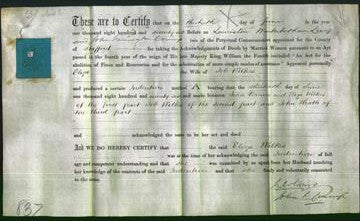 These are to Certify that on the thirtieth day of June in the year
one thousand eight hundred and seventy Before us
two of the Perpetual Commissioners appointed for the County
of Stafford for taking the Acknowledgments of Deeds by Married Women pursuant to an Act
passed in the fourth year of the reign of His late Majesty King William the Fourth intituled "An Act for the
abolition of Fines and Recoveries and for the substitution of more simple modes of assurance" Appeared personally
Eliza the Wife of Job Wilkes
and produced a certain Indenture marked bearing date the thirtieth day of June
one thousand eight hundred and seventy and made between Eliza Wilkes
of the first part Job Wilkes of the second part and John Heath of
the third part
and acknowledged the same to be her act and deed
AND WE DO HEREBY CERTIFY that the said Eliza Wilkes
was at the time of her acknowledging the said Indenture of full
age and competent understanding and that she was examined by us apart from her Husband touching
her knowledge of the contents of the said Indenture and that she freely and voluntarily consented
to the same.
837